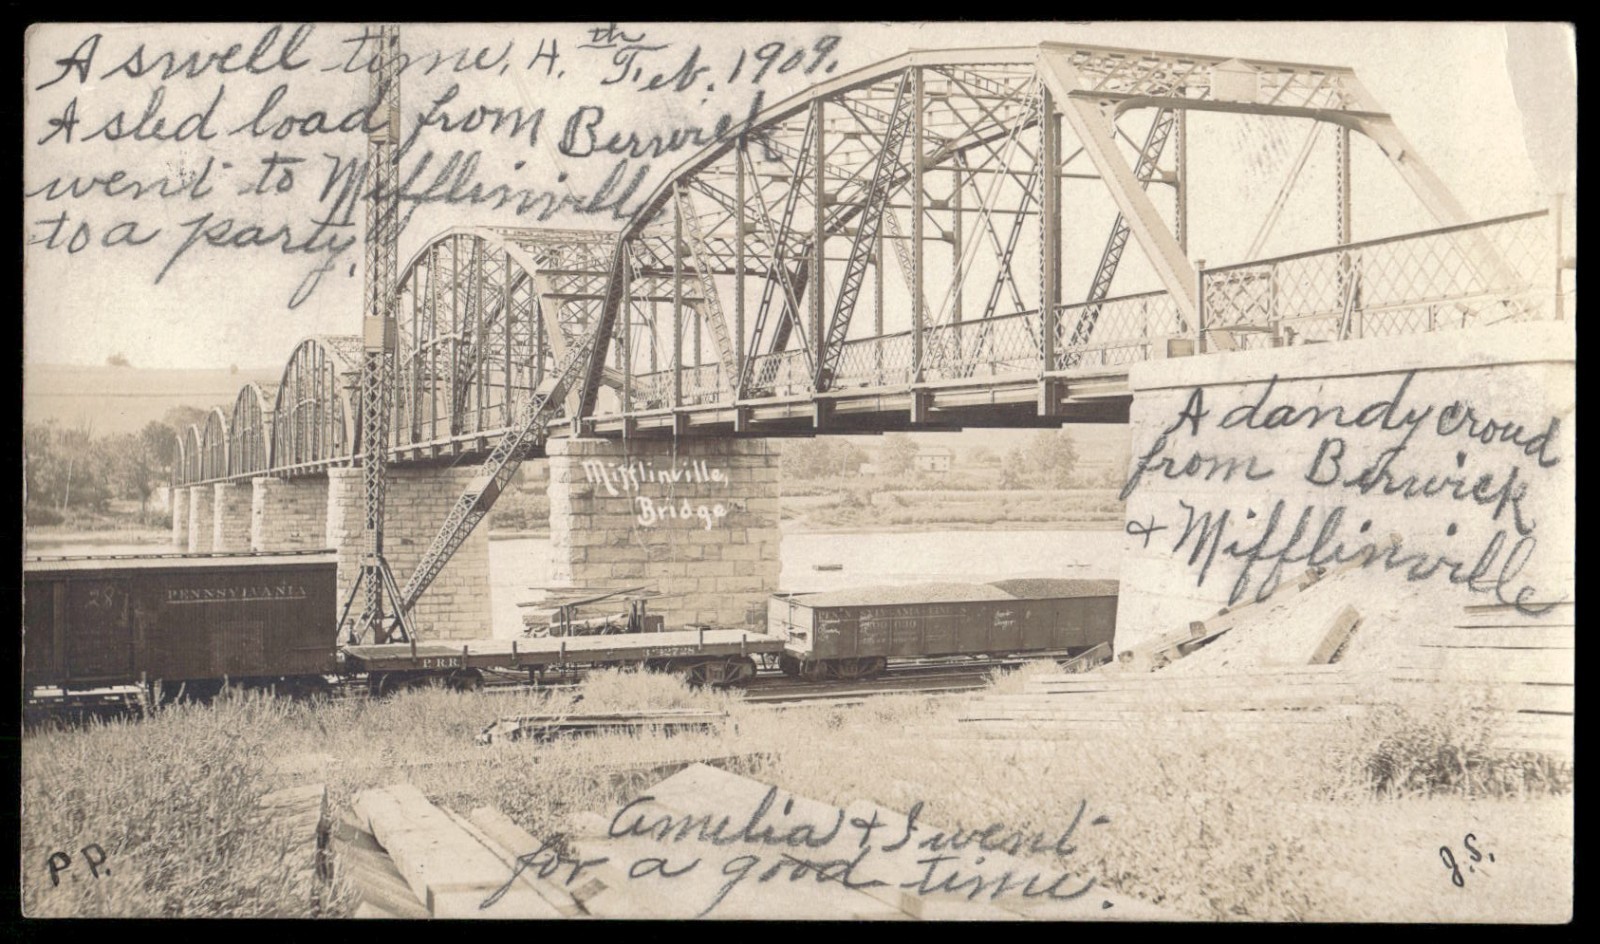 A swell time, 4.th Feb. 1909.
A sled load from Berwick
went to Mifflinville
to a party.
A dandy croud
from Berwick
& Mifflinville
Mifflinville,
Bridge
PENNSYLVANIA
P.R.R.
Amelia & I went
for a good time.
P.P.
J.S.